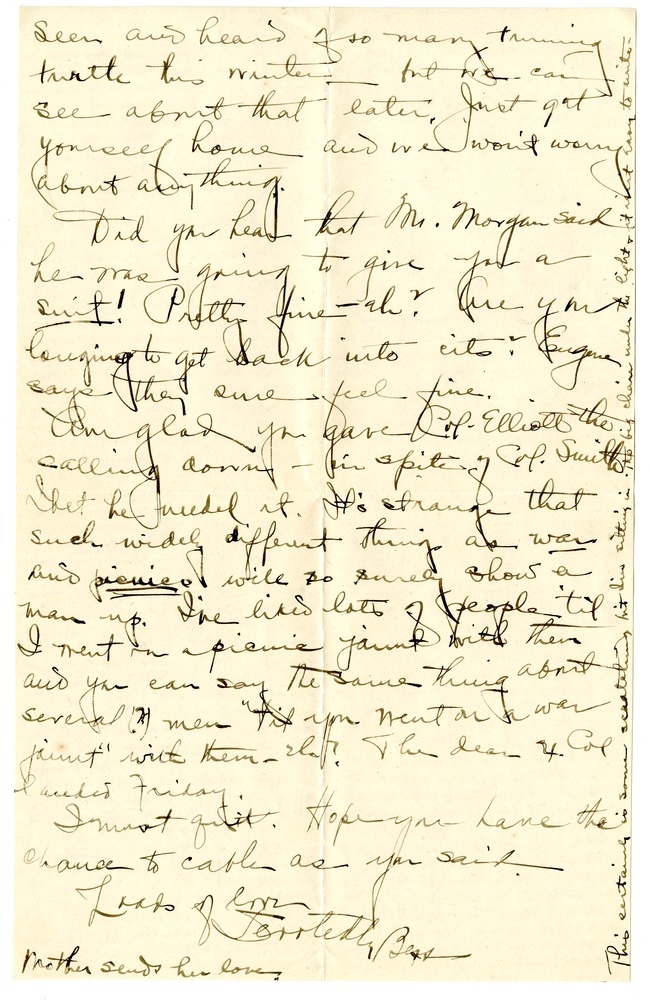 seen and heard of so many turning
turtle this winter - but we can
see about that later. Just get
yourself home and we won't worry
about anything.
Did you hear that Mr. Morgan said
he was going to give you a
suit! Pretty fine - eh? Are you
longing to get back into cits? Eugene
says they sure feel fine.
Am glad you gave Col. Elliott the
calling down - in spite of Col. Smith
I bet he needed it. It's strange that
such widely different things as war
and picnics will so surely show a
man up. I've liked lots of people 'til
I went on a picnic jaunt with them
and you can say the same thing about
several (?) men "'til you went on a war
jaunt" with them - eh? The dear Lt. Col
landed Friday.
I must quit. Hope you have the
chance to cable as you said.
Loads of love
Devotedly, Bess
Mother sends her love.
This certainly is some scratching but I'm sitting in the big chair under the light & it isn't easy to write-